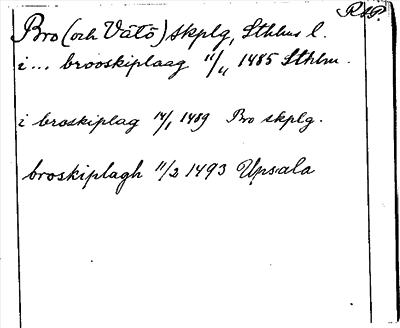 RAP.
Bro (och Vätö) skplg, Sthlms l.
i ... brooskiplaag 11/11 1485 Sthlm.
i broskiplag 14/1 1489 Bro skplg.
broskiplagh 11/2 1493 Upsala